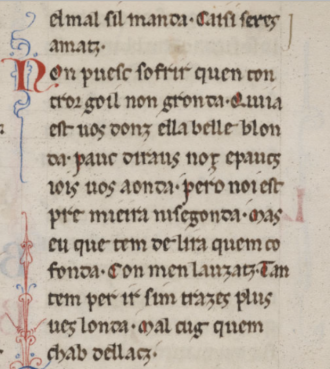 el mal sil manda. Caisi seres
amatz.
Non puesc sofrir quen con
tror goil non gronda. Quna
est uos donz ella belle blon
da. pauc diraus noz epaucz
iois uos aonda. pero noi est
pre mieira nisegonda. Mas
eu que tem de lira quem co
fonda. Con men lauzatz. Tan
tem per ir sim trazes plus
uez londa. Mal cug quem
chab dellacz.